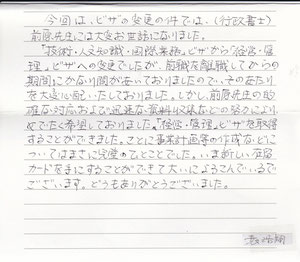 今回は、ビザの変更の件では、(行政書士)
前原先生には大変お世話になりました。
「技術・人文知識・国際業務」ビザから「経営・管
理」ビザへの変更でしたが、前職を離職してからの
期間にかなり間があいておりましたので、そのあたり
を大変心配いたしておりました。しかし、前原先生の的
確な対応および迅速な資料収集などの努力により
めでたく希望しておりました。「経営・管理」ビザを取得
することができました。ことに事業計画書の作成などに
ついてはまさに完璧のひとことでした。いま新しい在留
カードを手にすることができて大いによろこんでいるで
ございます。どうもありがとうございました。